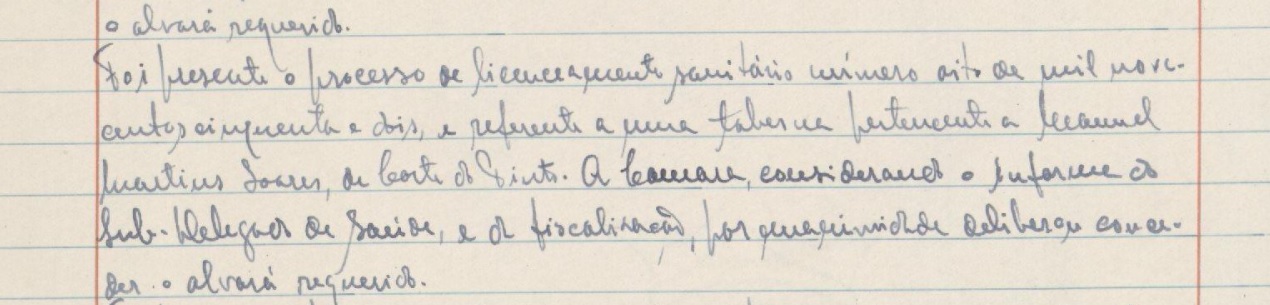 o alvará requerido.
Foi presente o processo de licenceamento sanitário número oito de mil nove-
centos cinquenta e dois, e referente a uma taberna pertencente a Manuel
Martins Soares, de Corte do Pinto. A Camara, considerando o informe do
Sub-Delegado de Saúde, e da fiscalização, por unanimidade deliberou conce-
der o alvará requerido.